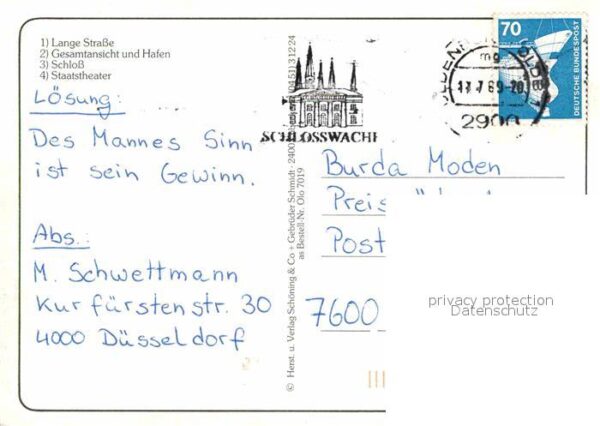 1) Lange Straße
2) Gesamtansicht und Hafen
3) Schloß
4) Staatstheater
Lösung:
Des Mannes Sinn
ist sein Gewinn.
Abs.:
M. Schwettmann
Kurfürstenstr. 30
4000 Düsseldorf
© Herst. u. Verlag Schöning & Co + Gebrüder Schmidt · 2400
as Bestell-Nr. Olo 7019
SCHLOSSWACHE
mg
2900
70
DEUTSCHE BUNDESPOST
Burda Moden
Post
7600
privacy protection
Datenschutz